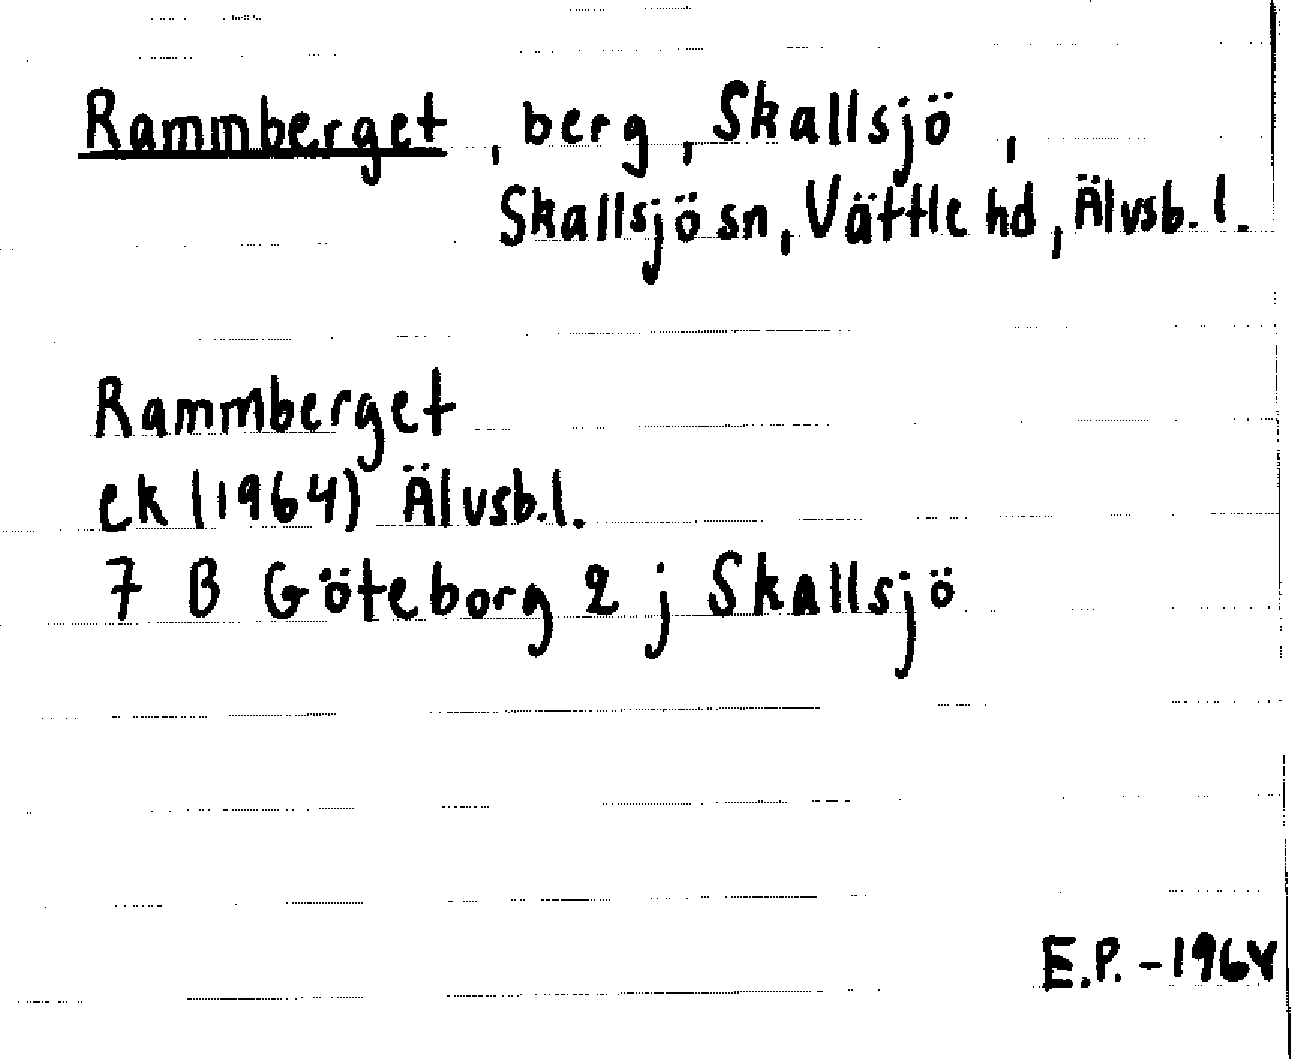 Rammberget, berg, Skallsjö,
Skallsjö sn, Vättle hd, Älvsb. l.
Rammberget
ek (1964) Älvsb.l.
7 B Göteborg 2 j Skallsjö
E.P. - 1964